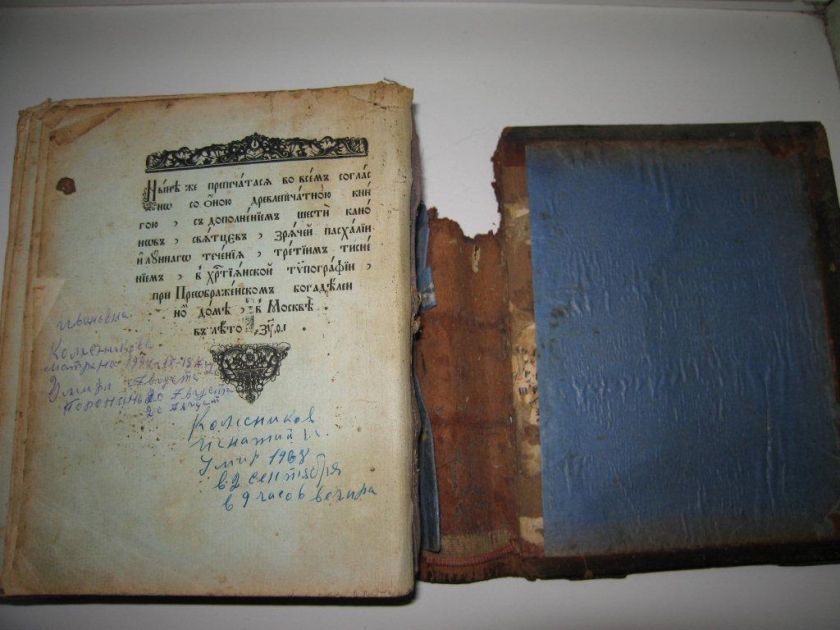 Ны́нѣ же препеча́тася во все́мъ соглас
но со ѻ҆́ною древлепеча́тною кни́
гою, съ дополне́нїемъ шестѝ кано́
нѡвъ, свѧ́тцєвъ, зрѧ́чей пасха́лїи
и҆ лꙋ́ннагѡ тече́нїѧ, тре́тїимъ тисне́
нїемъ, в҆ хрⷭ҇тїѧ́нской тѷпогра́фїи,
при Преѡбраже́нскомъ богадѣ́лен
но́ до́мѣ, в҆ Москвѣ̀
въ лѣ́то
Ивановна
Колесникова
Матрена
Умирла Августа
Августа
20 Август
Колесников
Игнатий И.
Умир 1968
в 2 сентября
в 9 часов вечира